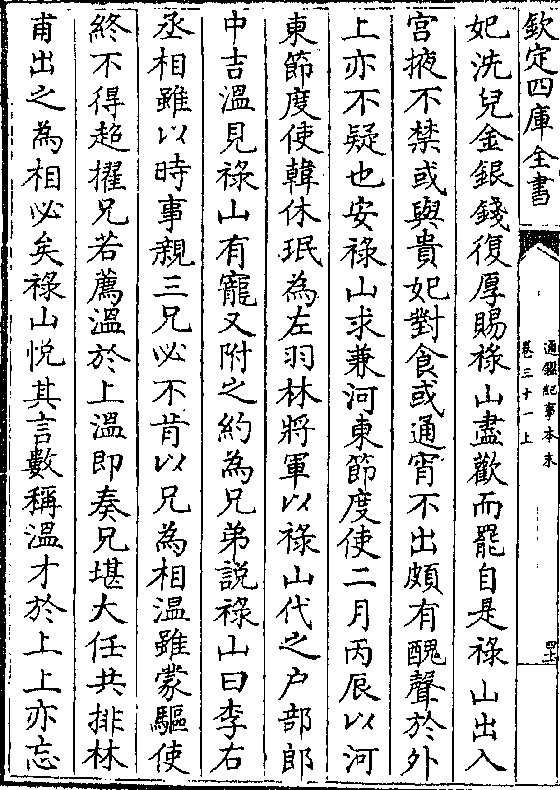 欽定四庫全書
通鑑紀事本末
卷三十一上
妃洗兒金銀錢復厚賜祿山盡歡而罷自是祿山出入
宮掖不禁或與貴妃對食或通宵不出頗有醜聲於外
上亦不疑也安祿山求兼河東節度使二月丙辰以河
東節度使韓休珉為左羽林將軍以祿山代之户部郎
中吉溫見祿山有寵又附之約為兄弟說祿山曰李右
丞相雖以時事親三兄必不肯以兄為相溫雖蒙驅使
終不得超擢兄若薦溫於上溫即奏兄堪大任共排林
甫出之為相必矣祿山悅其言數稱溫才於上上亦忘